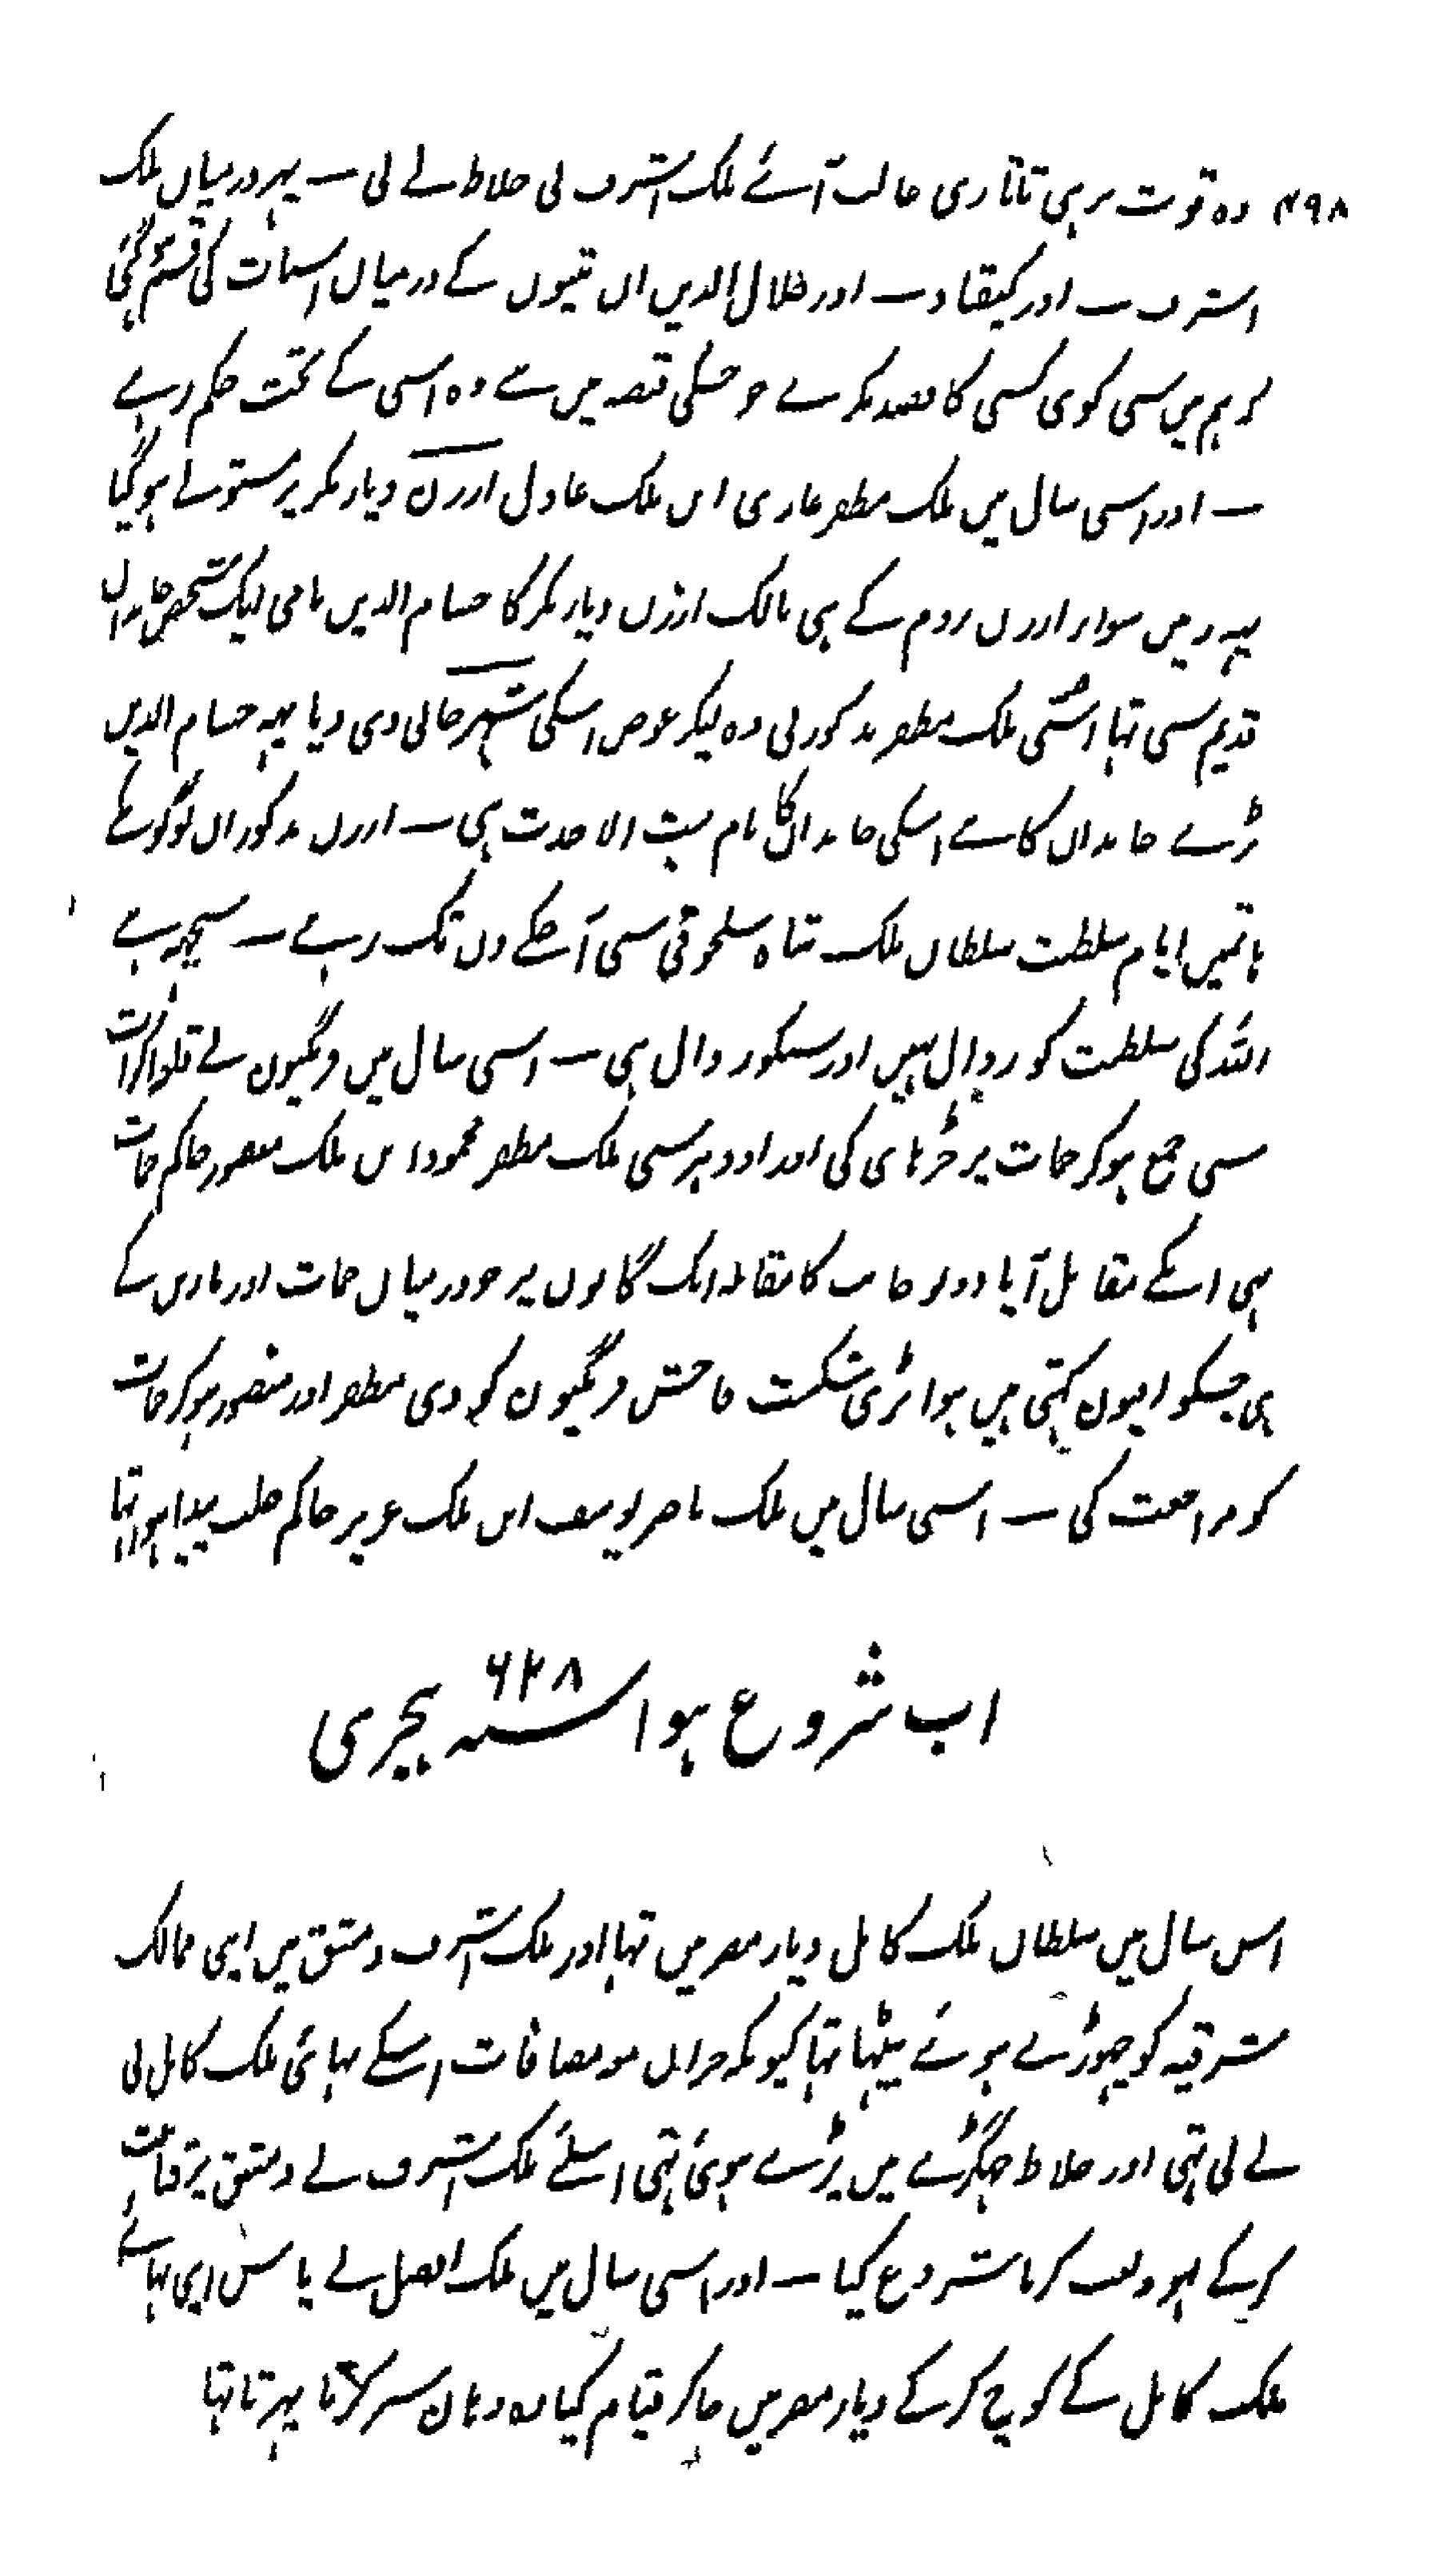 ۴۹۸ وہ قوت پر ہی تاتاری غالب آئے ملک اشرف نی خلاط لے لی ــ پہر درمیان ملک
اشرف ــ اور کیقباد ــ اور جلال الدین ان تینوں کے درمیان اسبات کی قسم ہو گئی
کہ ہم مین سی کوی کسی کا قصد نکرے جو جسکی قبضہ میں ہے وہ اسی کے تحت حکم رہے
ــ اور اسی سال میں ملک مظفر غازی ابن ملک عادل ارزن دیار بکر پر مستولے ہو گیا
یہہ زمین سوار ارزن روم کے ہی مالک ارزن دیار بکر کا حسام الدین نامی ایک شخص خاندان
قدیم سی تہا اسّی ملک مظفر مذکور نی وہ لیکر عوض اسکی شہر حانی دی دیا یہہ حسام الدین
بڑے خاندان کا ہے اسکی خاندان کا نام بیت الاحدت ہی ــ ارزن مذکور ان لوگو نکے
ہاتہیں ایام سلطنت سلطان ملک شاہ سلجوقی سی آجکے دن تک رہے ــ سچ ہے
اللہ کی سلطنت کو زوال نہیں اور سبکو زوال ہی ــ اسی سال میں فرنگیون نے قلعہ اکراد
سی جمع ہوکر حمات پر چڑہای کی اور اودہر سی ملک مظفر محمود ابن ملک منصور حاکم حمات
بہی اسکے مقابل آیا دونو جانب کا مقابلہ ایک گانوں پر جو درمیان حمات اور بارین کے
ہی جسکو افیون کہتی ہیں ہوا بڑی شکست فاحش فرنگیون کو دی مظفر اور منصور ہوکر حمات
کو مراجعت کی ــ اسی سال میں ملک ناصر یوسف ابن ملک عزیز حاکم حلب پیدا ہوا تہا
اب شروع ہوا سنہ ۶۲۸ ہجری
اس سال میں سلطان ملک کامل دیار مصر میں تہا اور ملک اشرف دمشق میں اپنی ممالک
شرقیہ کو چہوڑے ہوئے بیٹہا تہا کیونکہ حران مو مضافات اسکے بہائی ملک کامل نی
لے لی تہی اور خلاط جہگڑے میں پڑے ہوئی تہی اسلئے ملک اشرف نے دمشق پر قناعت
کر کے لہو ولعب کرنا شروع کیا ــ اور اسی سال میں ملک افضل نے پاس اپنی بہائے
ملک کامل کے کوچ کر کے دیار مصر میں جا کر قیام کیا وہ وہان سیر کرتا پہرتا تہا